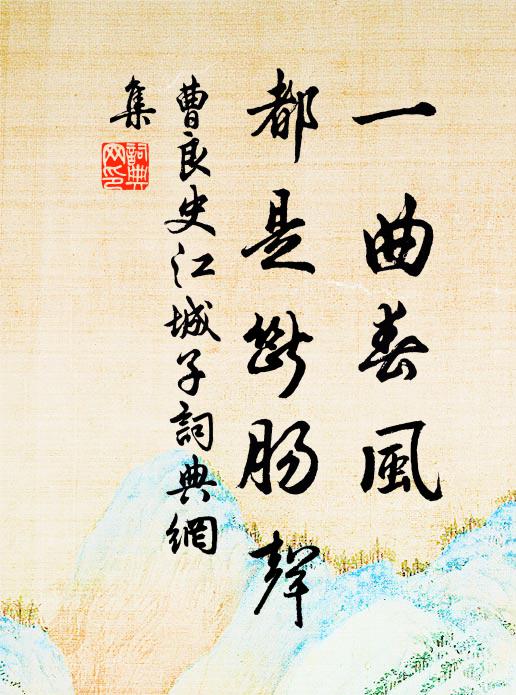 一曲春風
都是斷腸聲
曹良史江城子詞典網
集
詞典網印